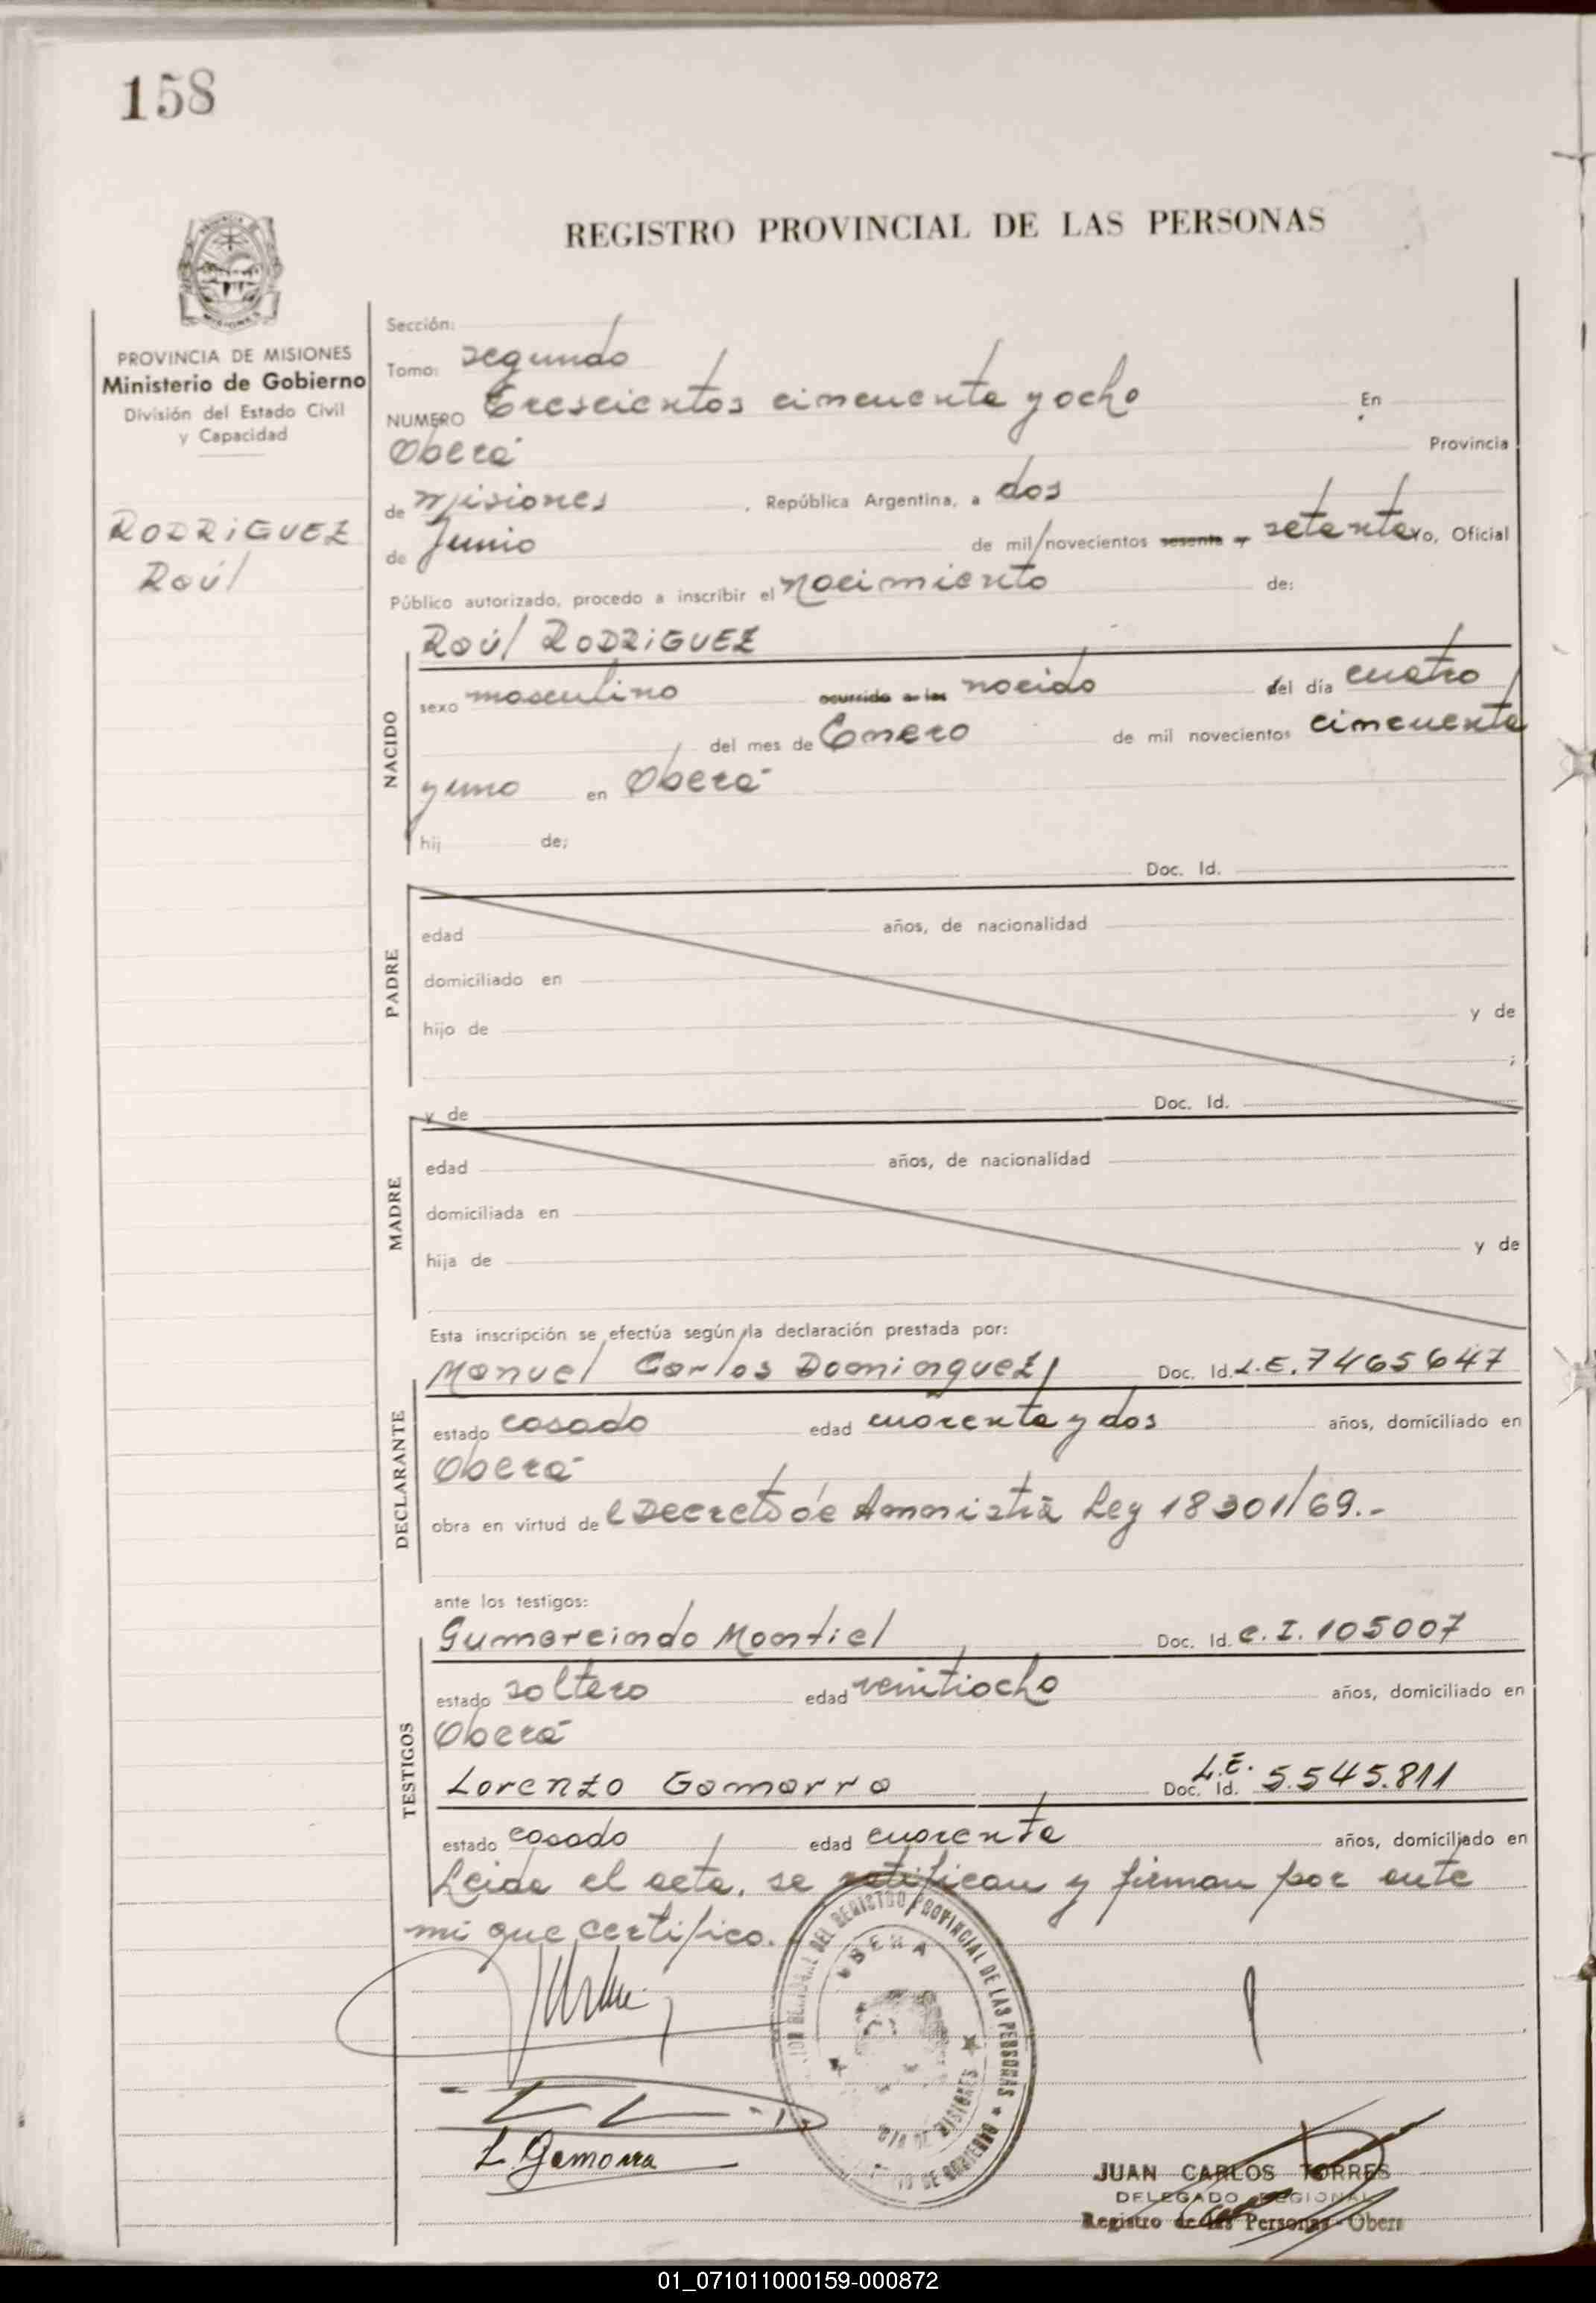 158
REGISTRO PROVINCIAL DE LAS PERSONAS
PROVINCIA DE MISIONES
Ministerio de Gobierno
División del Estado Civil
y Capacidad
RODRIGUEZ
Raúl
Sección:
Tomo: segundo
NUMERO Trescientos cincuenta y ocho En
Oberá Provincia
de Misiones, República Argentina, a dos
de Junio de mil novecientos sesenta y setenta Yo, Oficial
Público autorizado, procedo a inscribir el nacimiento de:
NACIDO
Raúl RODRIGUEZ
sexo masculino ocurrido a las nacido del día cuatro
del mes de Enero de mil novecientos cincuenta
y uno en Oberá
hij de;
PADRE
Doc. Id.
edad años, de nacionalidad
domiciliado en
hijo de y de
;
MADRE
y de Doc. Id.
edad años, de nacionalidad
domiciliada en
hija de y de
Esta inscripción se efectúa según la declaración prestada por:
DECLARANTE
Manuel Carlos Dominguez Doc. Id. L.E. 7465647
estado casado edad cuarenta y dos años, domiciliado en
Oberá
obra en virtud de Decreto de Amnistia Ley 18301/69.-
ante los testigos:
TESTIGOS
Gumarcindo Montiel Doc. Id. C.I. 105007
estado soltero edad venitiocho años, domiciliado en
Oberá
Lorenzo Gamarra Doc. Id. L.E. 5.545.811
estado casado edad cuarenta años, domiciliado en
Leida el acta, se ratifican y firman por ante
mi que certifico.
DEL REGISTRO PROVINCIAL DE LAS PERSONAS
OBERA
DE MISIONES
DE GOBIERNO
L. Gamarra
JUAN CARLOS TORRES
DELEGADO REGIONAL
Registro de las Personas - Obera
01_071011000159-000872